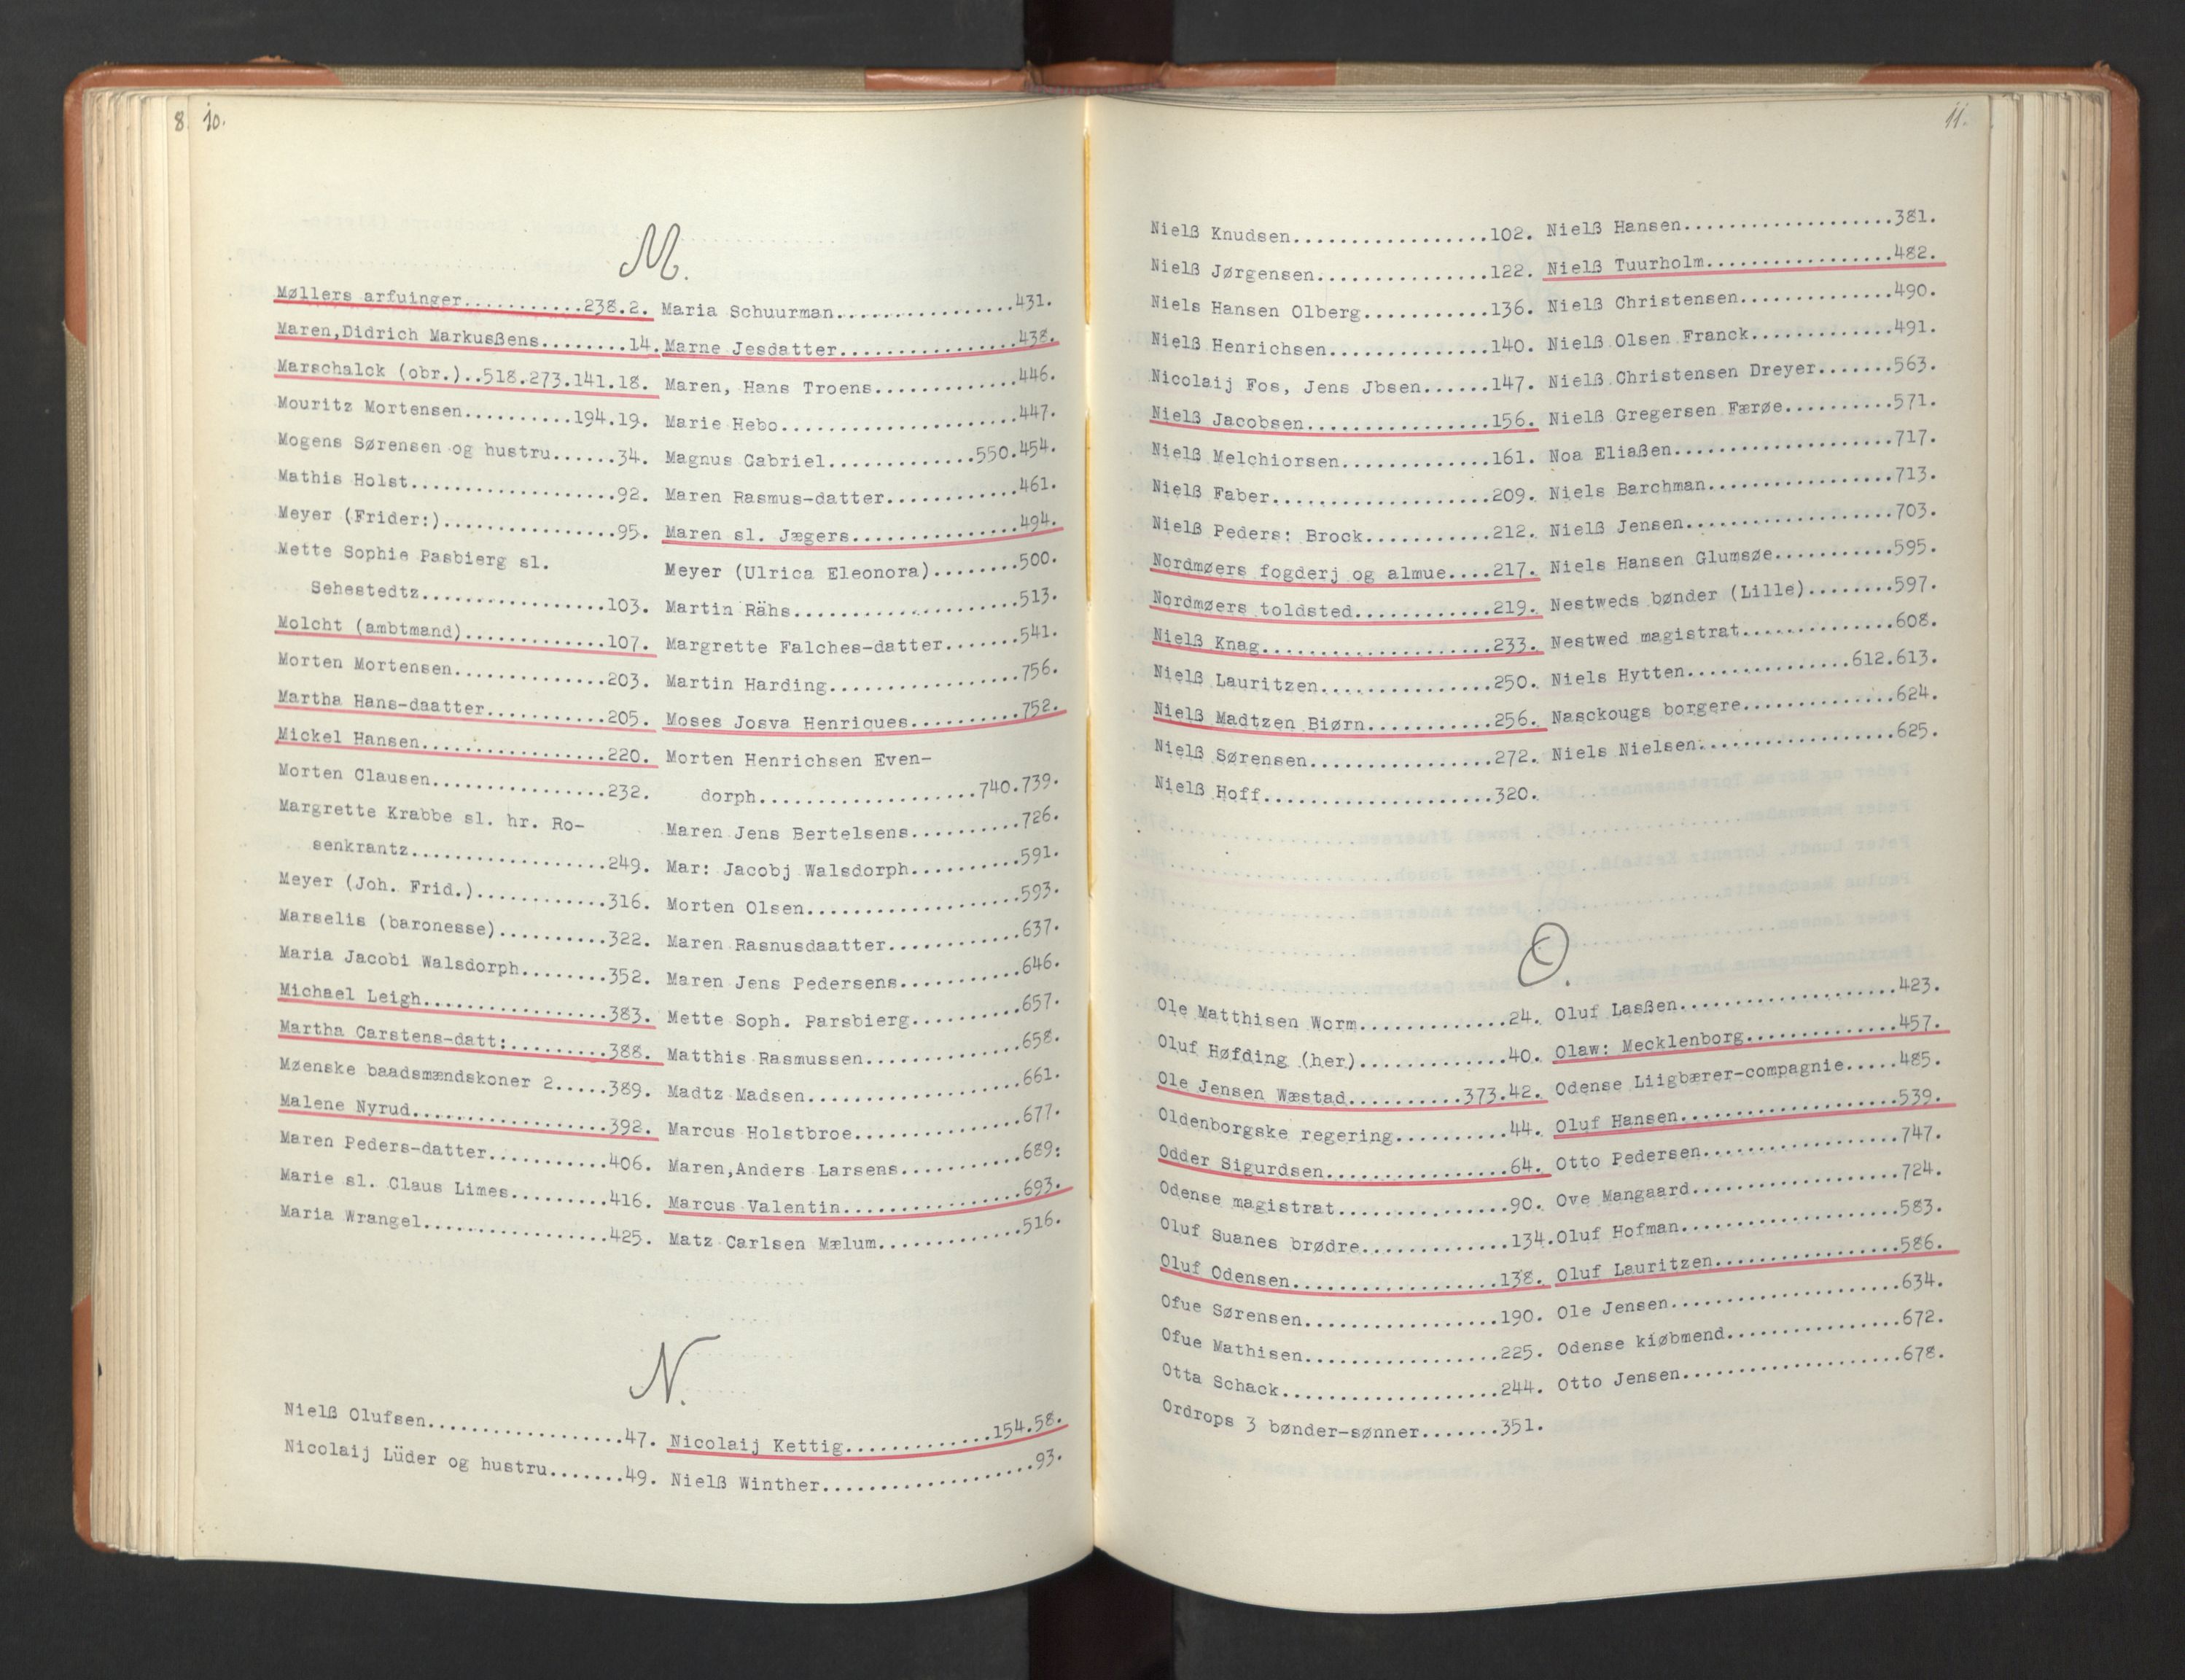 8 10.
M.
Møllers arfuinger............238.2.
Maren,Didrich Markusßens........14.
Marschalck (obr.)..518.273.141.18.
Mouritz Mortensen..........194.19.
Mogens Sørensen og hustru......34.
Mathis Holst...................92.
Meyer (Frider:)................95.
Mette Sophie Pasbierg sl.
Sehestedtz.................103.
Molcht (ambtmand).............107.
Morten Mortensen..............203.
Martha Hans-daatter...........205.
Mickel Hansen.................220.
Morten Clausen................232.
Margrette Krabbe sl. hr. Ro-
senkrantz..................249.
Meyer (Joh. Frid.)............316.
Marselis (baronesse)..........322.
Maria Jacobi Walsdorph........352.
Michael Leigh.................383.
Martha Carstens-datt:.........388.
Møenske baadsmændskoner 2.....389.
Malene Nyrud..................392.
Maren Peders-datter...........406.
Marie sl. Claus Limes.........416.
Maria Wrangel.................425.
Maria Schuurman.................431.
Marne Jesdatter.................438.
Maren, Hans Troens.............446.
Marie Hebo......................447.
Magnus Gabriel.............550.454.
Maren Rasmus-datter............461.
Maren sl. Jægers...............494.
Meyer (Ulrica Eleonora)........500.
Martin Rähs.....................513.
Margrette Falches-datter.......541.
Martin Harding..................756.
Moses Josva Henriques..........752.
Morten Henrichsen Even-
dorph....................740.739.
Maren Jens Bertelsens..........726.
Mar: Jacobj Walsdorph.........591.
Morten Olsen....................593.
Maren Rasnusdaatter............637.
Maren Jens Pedersens...........646.
Mette Soph. Parsbierg..........657.
Matthis Rasmussen..............658.
Madtz Madsen....................661.
Marcus Holstbroe...............677.
Maren,Anders Larsens...........689:
Marcus Valentin................693.
Matz Carlsen Mælum.............516.
N.
Nielß Olufsen..................47.
Nicolaij Lüder og hustru.......49.
Nicolaij Kettig.............154.58.
Nielß Winther...................93.
11.
Nielß Knudsen..................102.
Nielß Jørgensen................122.
Niels Hansen Olberg............136.
Nielß Henrichsen...............140.
Nicolaij Fos, Jens Jbsen......147.
Nielß Jacobsen.................156.
Nielß Melchiorsen..............161.
Nielß Faber....................209.
Nielß Peders: Brock............212.
Nordmøers fogderj og almue....217.
Nordmøers toldsted.............219.
Nielß Knag.....................233.
Nielß Lauritzen................250.
Nielß Madtzen Biørn............256.
Nielß Sørensen.................272.
Nielß Hoff.....................320.
Nielß Hansen...................381.
Nielß Tuurholm.................482.
Nielß Christensen..............490.
Nielß Olsen Franck.............491.
Nielß Christensen Dreyer.......563.
Nielß Gregersen Færøe..........571.
Noa Eliaßen....................717.
Niels Barchman.................713.
Nielß Jensen...................703.
Niels Hansen Glumsøe...........595.
Nestweds bønder (Lille)........597.
Nestwed magistrat..............608.
Niels Hytten...............612.613.
Nasckougs borgere..............624.
Niels Nielsen..................625.
O.
Ole Matthisen Worm.............24.
Oluf Høfding (her).............40.
Ole Jensen Wæstad..........373.42.
Oldenborgske regering..........44.
Odder Sigurdsen................64.
Odense magistrat...............90.
Oluf Suanes brødre.............134.
Oluf Odensen...................138.
Ofue Sørensen..................190.
Ofue Mathisen..................225.
Otta Schack....................244.
Ordrops 3 bønder-sønner.......351.
Oluf Lasßen....................423.
Olaw: Mecklenborg..............457.
Odense Liigbærer-compagnie.....485.
Oluf Hansen....................539.
Otto Pedersen..................747.
Ove Mangaard...................724.
Oluf Hofman....................583.
Oluf Lauritzen.................586.
Ole Jensen.....................634.
Odense kiøbmend................672.
Otto Jensen....................678.